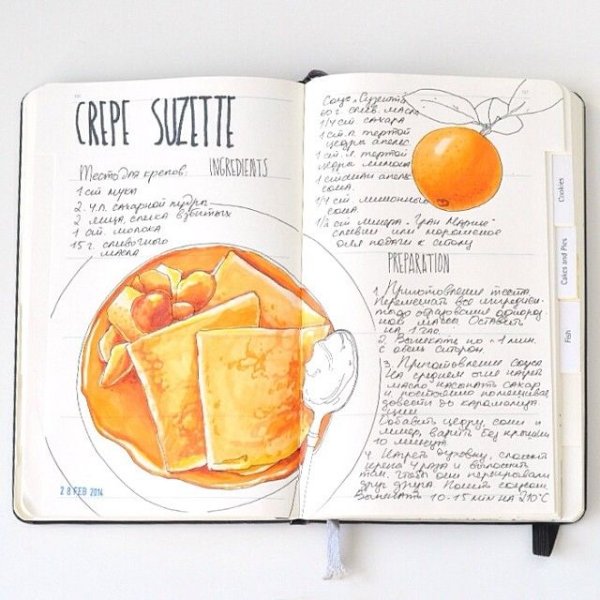 CREPE SUZETTE
INGREDIENTS
Тесто для крепов:
1 ст мука
2 ч.л. сахарной пудры
2 яйца, слегка взбитых
1 ст. молока
15 г. сливочного
масла
28 FEB 2014
Соус "Сузетт"
60 г слив. масла
1/4 ст сахара
1 ст.л. тертой
цедры апельс.
1 ст. л. тертой
цедры лимона
1 стакан апельс
сока.
1/4 ст лимонного
сока.
1/2 ст ликера "Гран Марнье"
сливки или мороженое
для подачи к столу
PREPARATION
1. Приготовления теста
Перемешать все ингредиен-
ты до образования однород
ной массы Оставить
на 1 час.
2. Выпекать по 1 мин.
с двух сторон.
3. Приготовления соуса
На среднем огне нагреть
масло насыпать сахар
и постоянно помешивая
довести до карамелиза
ции
Добавить цедру, соки и
ликер, варить без крышки
10 минут
4 Нагреть духовку, сложить
крепы 4 раза и выложить
так, чтоб они перекрывали
друг друга. Полить соусом
Выпекать 10-15 мин на 210°C
Cookies
Cakes and Pies
Fish